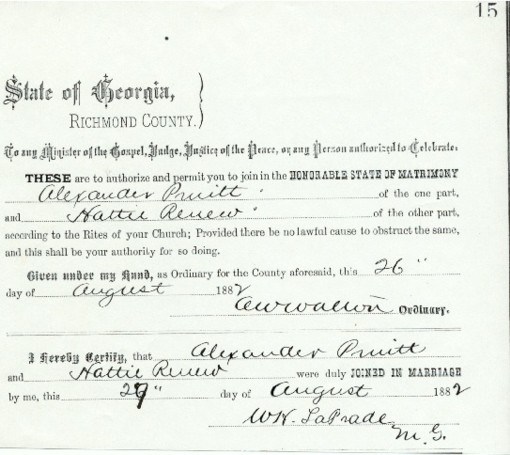 15
State of Georgia,
RICHMOND COUNTY.
To any Minister of the Gospel, Judge, Justice of the Peace, or any Person authorized to Celebrate.
THESE are to authorize and permit you to join in the HONORABLE STATE OF MATRIMONY
Alexander Pruitt of the one part,
and Hattie Renew of the other part,
according to the Rites of your Church; Provided there be no lawful cause to obstruct the same,
and this shall be your authority for so doing.
Given under my Hand, as Ordinary for the County aforesaid, this 26"
day of August 1882
A W Walton Ordinary.
I Hereby Certify, that Alexander Pruitt
and Hattie Renew were duly JOINED IN MARRIAGE
by me, this 27" day of August 1882
W.H. LaPrade
M. G.